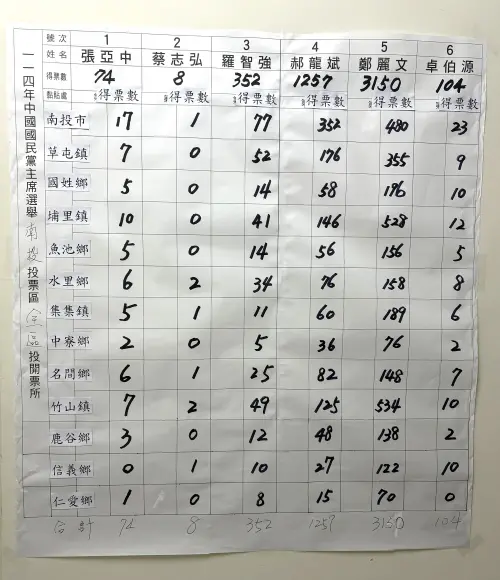 一一四年中國國民黨主席選舉南投投票區全區投開票所
號次 1 2 3 4 5 6
姓名 張亞中 蔡志弘 羅智強 郝龍斌 鄭麗文 卓伯源
得票數 74 8 352 1257 3150 104
黏貼處 得票數 得票數 得票數 得票數 得票數 得票數
南投市 17 1 77 352 480 23
草屯鎮 7 0 52 176 355 9
國姓鄉 5 0 14 58 196 10
埔里鎮 10 0 41 146 528 12
魚池鄉 5 0 14 56 156 5
水里鄉 6 2 34 76 158 8
集集鎮 5 1 11 60 189 6
中寮鄉 2 0 5 36 76 2
名間鄉 6 1 25 82 148 7
竹山鎮 7 2 49 125 534 10
鹿谷鄉 3 0 12 48 138 2
信義鄉 0 1 10 27 122 10
仁愛鄉 1 0 8 15 70 0
合計 74 8 352 1257 3150 104